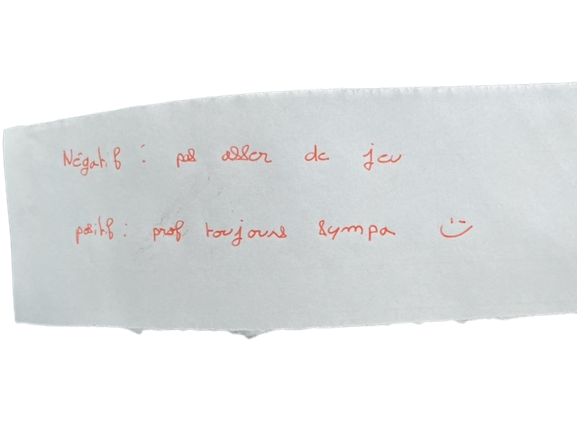 Négatif : pas asser de jeu
positif : prof toujours sympa :)